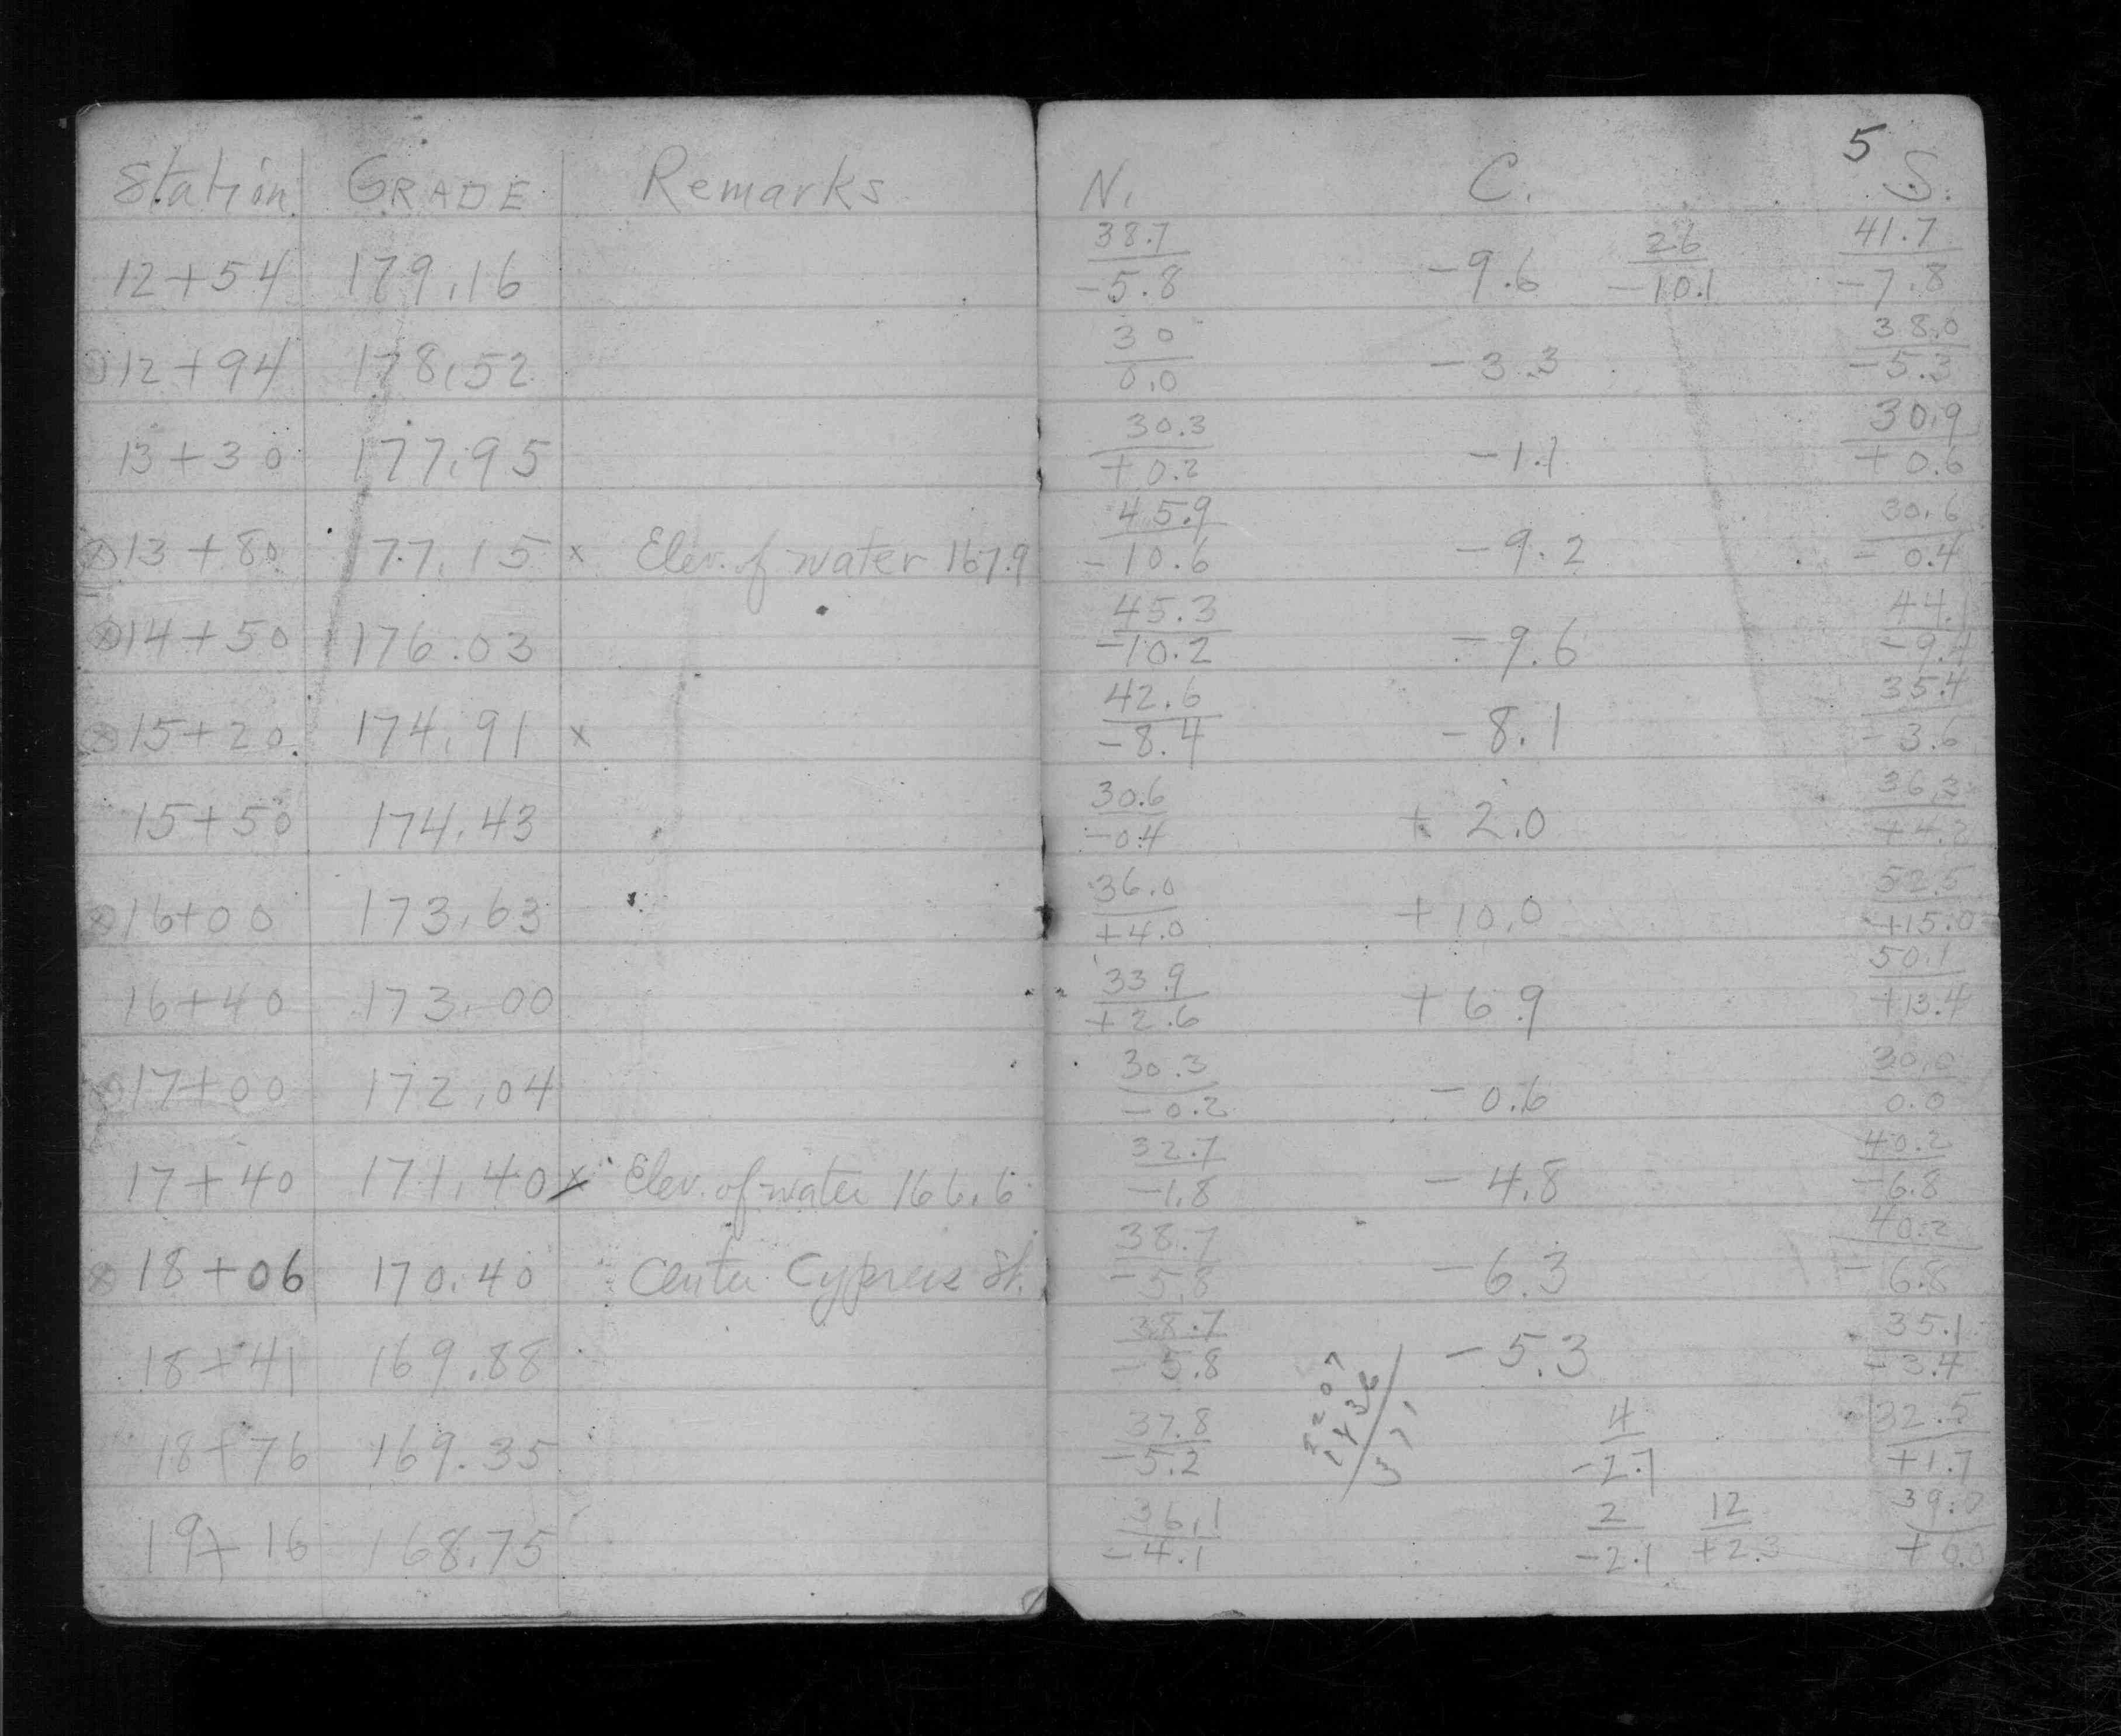 5
Station GRADE Remarks N. C. S.
38.7 26 41.7
12+54 179.16 -5.8 -9.6 -10.1 -7.8
30 38.0
12+94 178.52 0.0 -3.3 -5.3
30.3 30.9
13+30 177.95 +0.2 -1.1 +0.6
45.9 30.6
⊗13+80 177.15 x Elev. of water 167.9 -10.6 -9.2 -0.4
45.3 44.1
⊗14+50 176.03 -10.2 -9.6 -9.4
42.6 35.4
⊗15+20 174.91 x -8.4 -8.1 -3.6
30.6 36.3
15+50 174.43 -0.4 +2.0 +4.2
36.0 52.5
⊗16+00 173.63 +4.0 +10.0 +15.0
33.9 50.1
16+40 173.00 +2.6 +6.9 +13.4
30.3 30.0
⊗17+00 172.04 -0.2 -0.6 0.0
32.7 40.2
17+40 171.40 x Elev. of water 166.6 -1.8 -4.8 -6.8
38.7 40.2
⊗18+06 170.40 Center Cypress St. -5.8 -6.3 -6.8
38.7 35.1
18+41 169.88 -5.8 -5.3 -3.4
37.8 4 32.5
18+76 169.35 -5.2 -2.7 +1.7
36.1 2 12 39.0
19+16 168.75 -4.1 -2.1 +2.3